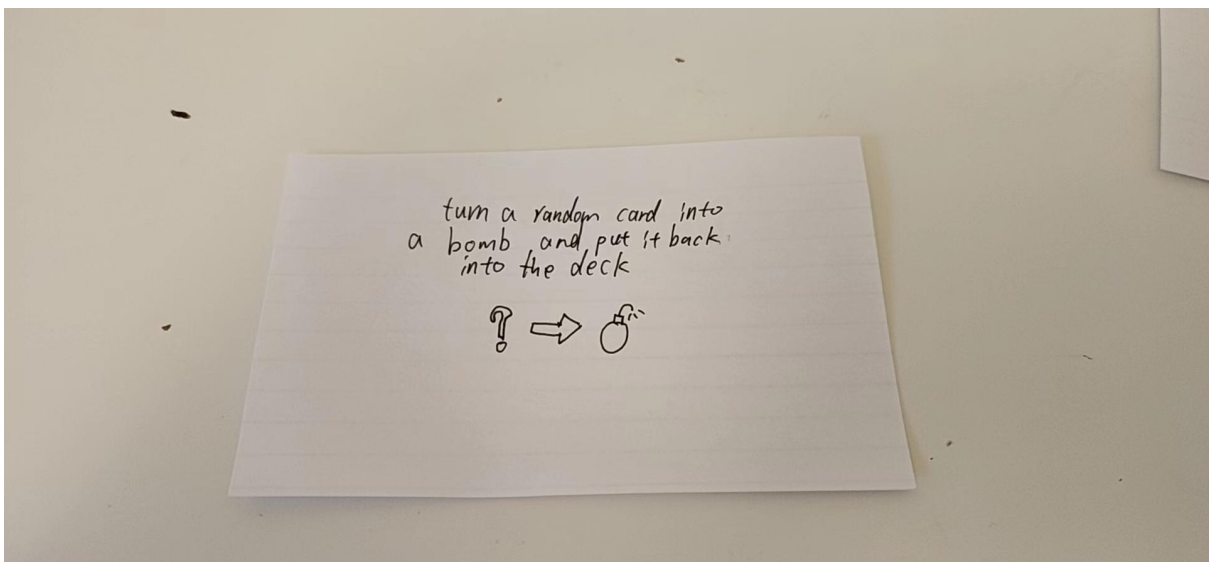 turn a random card into
a bomb and put it back
into the deck